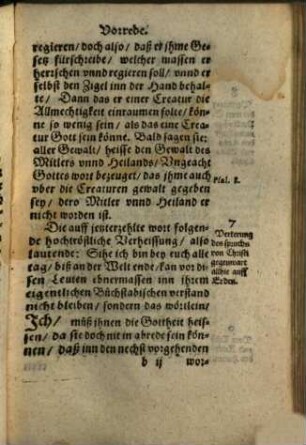 Vorrede.
regieren/ doch also/ daß er jhme Ge-
setz fürschreibe/ welcher massen er
herrschen vnnd regieren soll/ vnnd er
selbst den Zigel inn der Hand behal-
te/ Dann das er einer Creatur die
Allmechtigkeit einraumen solte/ kön-
ne so wenig sein/ als das eine Crea-
tur Gott sein könne. Bald sagen sie:
aller Gewalt/ heisse den Gewalt des
Mitlers vnnd Heilands/ Vngeacht
Gottes wort bezeuget/ das jhme auch
vber die Creaturen gewalt gegeben
sey/ dero Mitler vnnd Heiland er
nicht worden ist.
Psal. 8.
Die auff jeterzehlte wort folgen-
de hochtröstliche Verheissung/ also
lautende: Sihe ich bin bey euch alle
tag/ biß an der Welt ende/ kan vor di-
sen Leuten ebnermassen inn ihrem
eigentlichen Büchstäbischen verstand
nicht bleiben/ sondern das wörtlein/
Ich/ müß ihnen die Gottheit heis-
sen/ da sie doch nit in abrede sein kön-
nen/ daß inn den nechst vorgehenden
7
Verkerung
des spruchs
von Christi
gegenwart
allhie auff
Erden.
b ij wor-